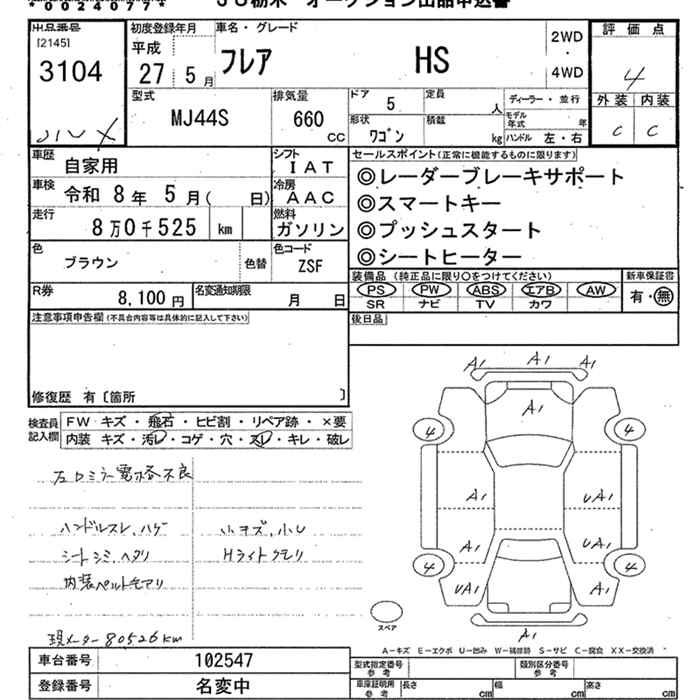 *0024077*
JU栃木 オークション出品申込書
出品番号
[2145]
3104
初度登録年月
平成
27 5 月
車名・グレード
フレア HS
2WD
・
4WD
評価点
4
外装 内装
C C
型式
MJ44S
排気量
660
CC
ドア 5
定員 人
形状
ワゴン
積載 kg
ディーラー・並行
モデル年式 年
ハンドル 左・右
車歴
自家用
シフト
IAT
車検
令和 8 年 5 月( 日)
冷房
AAC
走行
8万0千525 km
燃料
ガソリン
色
ブラウン
色替
色コード
ZSF
R券
8,100 円
名変通知期限
月 日
セールスポイント(正常に機能するものに限ります)
◎レーダーブレーキサポート
◎スマートキー
◎プッシュスタート
◎シートヒーター
装備品 (純正品に限り○をつけてください)
PS PW ABS エアB AW
SR ナビ TV カワ
新車保証書
有・無
後日品
注意事項申告欄(不具合内容等は具体的に記入して下さい)
修復歴 有〔箇所 〕
検査員
記入欄
FW キズ・飛石・ヒビ割・リペア跡・×要
内装 キズ・汚レ・コゲ・穴・スレ・キレ・破レ
左ロミラー電格不良
ハンドルスレ、ハゲ
小キズ、小U
シートシミ、ヘタリ
Hライトクモリ
内装ベルトモアリ
現メーター80526km
A1 A1 A1
A1
4 4
A1 UA1
A1 UA1
4 4
UA1 A1
A1
スペア
A-キズ E-エクボ U-凹み W-補修跡 S-サビ C-腐食 XX-交換済
車台番号 102547
登録番号 名変中
型式指定番号
参考
類別区分番号
参考
車庫証明用
参考
長さ cm 幅 cm 高さ cm